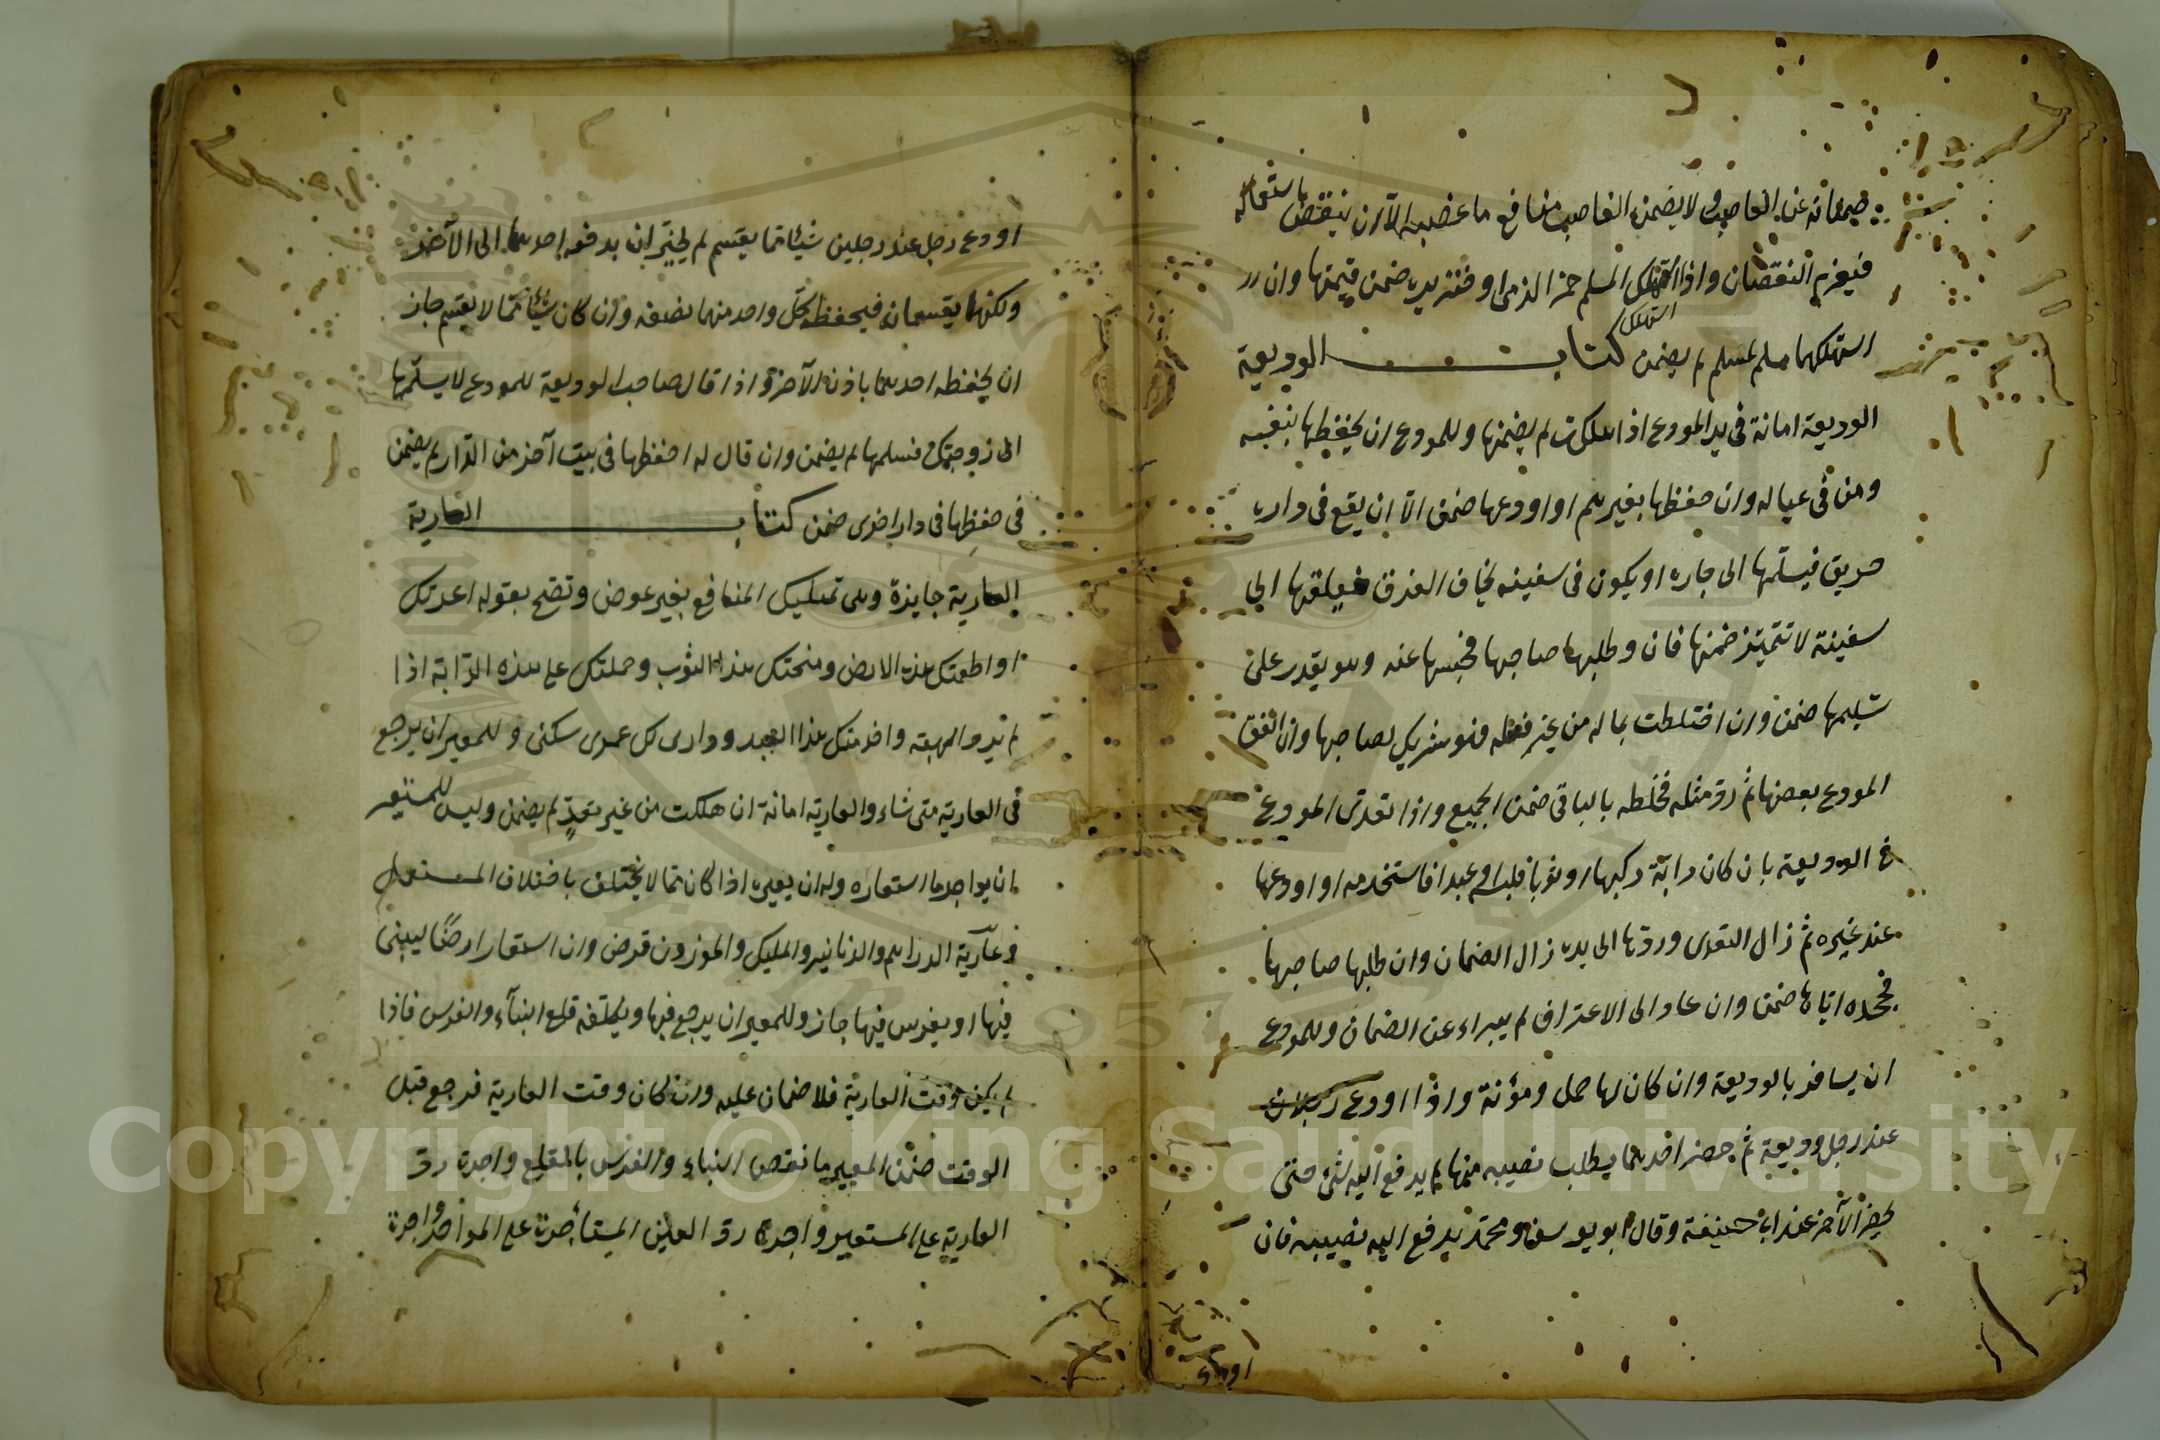 ضمانه عن الغاصب ولا يضمن الغاصب منافع ما غصبه الا ان ينقص باستعماله
فيغرم النقصان واذا استهلك المسلم خمر الذمى او خنزيره ضمن قيمتها وان
استهلك
استهلكهما مسلم لمسلم لم يضمن كتاب الوديعة
الوديعة امانة فى يد المودع اذا هلكت لم يضمنها وللمودع ان يحفظها بنفسه
ومن فى عياله وان حفظها بغيرهم او اودعها ضمن الّا ان يقع فى داره
حريق فيسلّمها الى جاره او يكون فى سفينه يخاف الغرق فيلقها الى
سفينة لا تتميّز ضمنها فان وطلبها صاحبها فحبسها عنه وهو يقدر على
تسليمها ضمن وان اختلطت بماله من غير فعله فهو شريك لصاحبها وان انفق
المودع بعضها ثم ردّ مثله فخلطه بالباقى ضمن الجميع واذا تعدّى المودع
فى الوديعة بان كان دابّة فركبها او ثوبا فلبسه او عبدا فاستخدمه او اودعها
عند غيره ثم زال التعدى وردّها الى يده زال الضمان وان طلبها صاحبها
فجحده ايّاها ضمن وان عاد الى الاعتراف لم يبراء عن الضمان وللمودع
ان يسافر بالوديعة وان كان لها حمل ومؤنة واذا اودع رجلان
عند رجل وديعة ثم حضر احدهما يطلب نصيبه منها لم يدفع اليه شئ حتى
يحضر الآخر عند ابى حنيفة وقال ابو يوسف ومحمّد يدفع اليه نصيبه فان
اودع
اودع رجل عند رجلين شيئا ممّا يقسم لم يجز ان يدفعه احدهما الى الآخر
ولكنهما يقسمانه فيحفظ كلّ واحد منهما نصفه وان كان شيئا ممّا لا يقسم جاز
ان يحفظه احدهما باذن الآخر واذا قال صاحب الوديعة للمودع لا يسلّمها
الى زوجتك فسلمها لم يضمن وان قال له احفظها فى بيت آخر من الدّار لم يضمن
فى حفظها فى دار اخرى ضمن كتاب العارية
العارية جايزة وهى تمليك المنافع بغير عوض وتصح بقوله اعرتك
او اطعمتك هذه الارض ومنحتك هذا الثوب وحملتك على هذه الدّابة اذا
لم يرد الهبة واخدمتك هذا العبد ودارى لك عمرى سكنى وللمعير ان يرجع
فى العارية متى شاء والعارية امانة ان هلكت من غير تعدٍّ لم يضمن وليس للمستعير
ان يواجر ما استعاره وله ان يعيره اذا كان ممّا لا يختلف باختلاف المستعمل
وعارّية الدراهم والدنانير والمليكل والموزون قرض وان استعار ارضًا ليبنى
فيها او يغرس فيها جاز وللمعير ان يرجع فيها ويكلّفه قلع البنآء والغرس فاذا
لم يكن وقت العارية فلا ضمان عليه وان كان وقت العارية فرجع قبل
الوقت ضمن المعير ما نقص البناء والغرس بالقلع واجرة ردّ
العارية على المستعير واجرة ردّ العين المستأجرة على المواجر واجرة
Copyright © King Saud University
1957